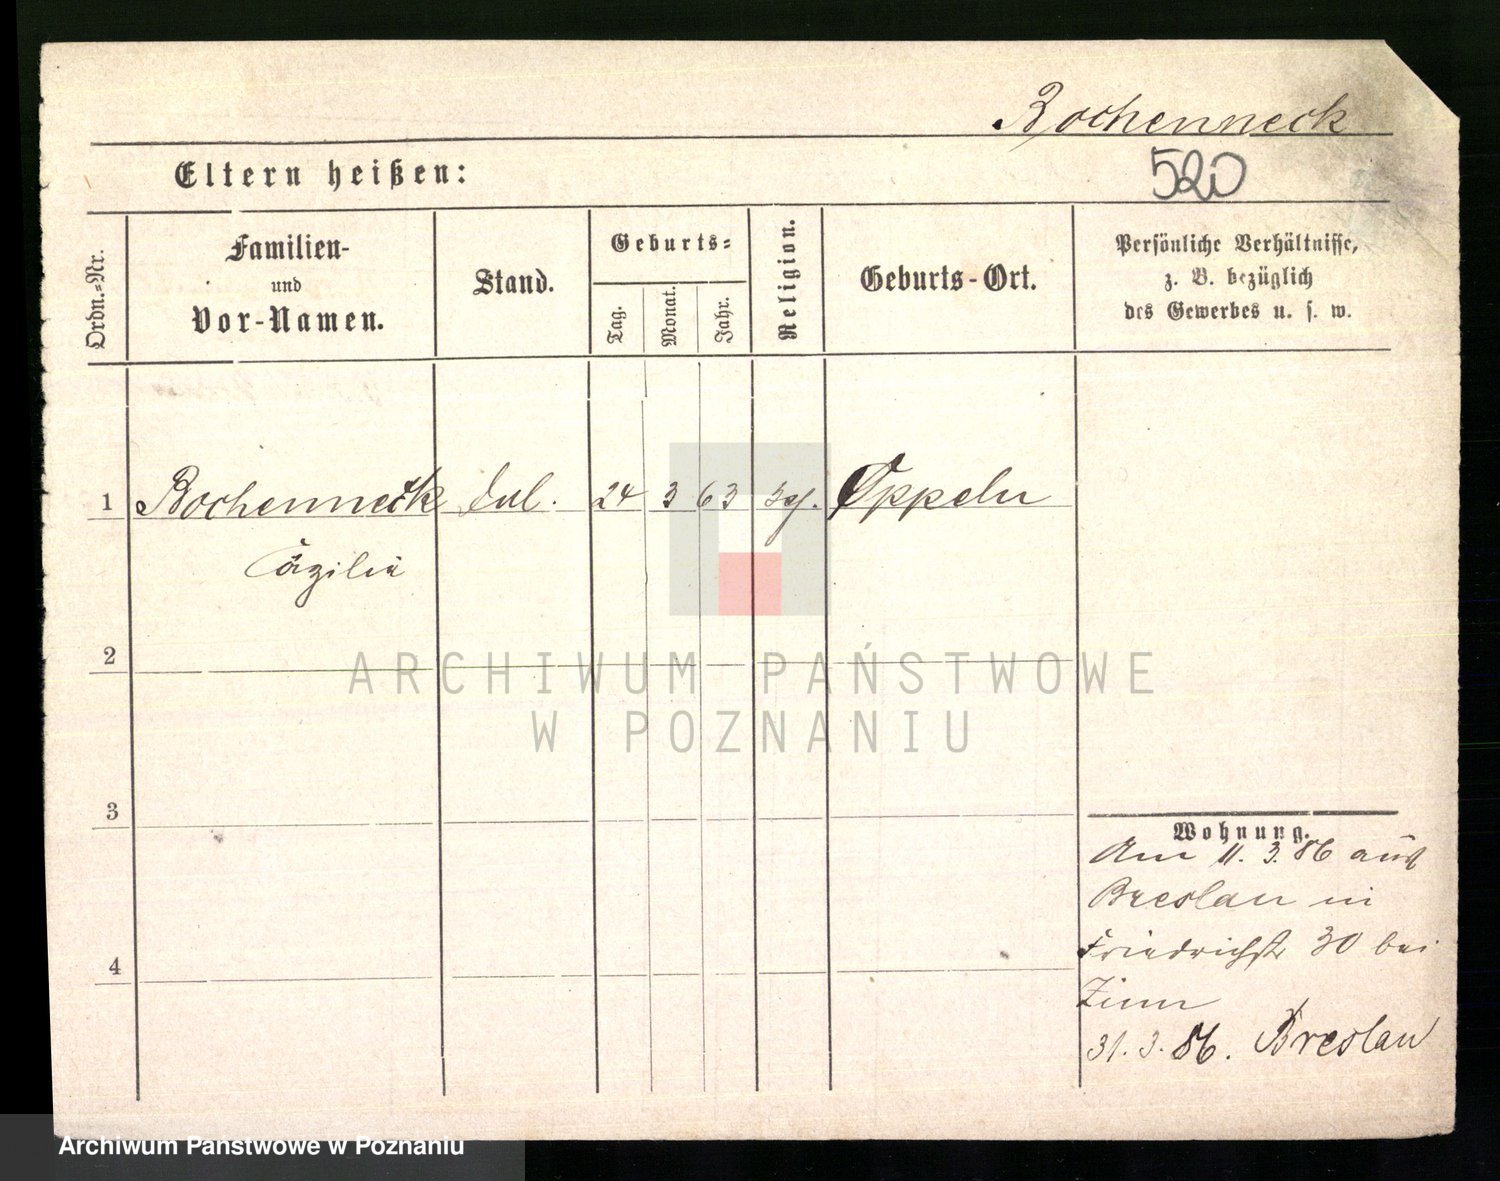 Bochenneck
520
Eltern heißen:
Ordn.-Nr.
Familien-
und
Vor-Namen.
Stand.
Geburts-
Tag.
Monat.
Jahr.
Religion.
Geburts-Ort.
Persönliche Verhältnisse,
z. B. bezüglich
des Gewerbes u. s. w.
1 Bochenneck 24 3 63 Oppeln
Cäzilie
2
ARCHIWUM PAŃSTWOWE
W POZNANIU
3
Wohnung.
Am 11. 3. 86 aus
Breslau in
Friedrichstr 30 bei
Zinn
4
31. 3. 86. Breslau
Archiwum Państwowe w Poznaniu